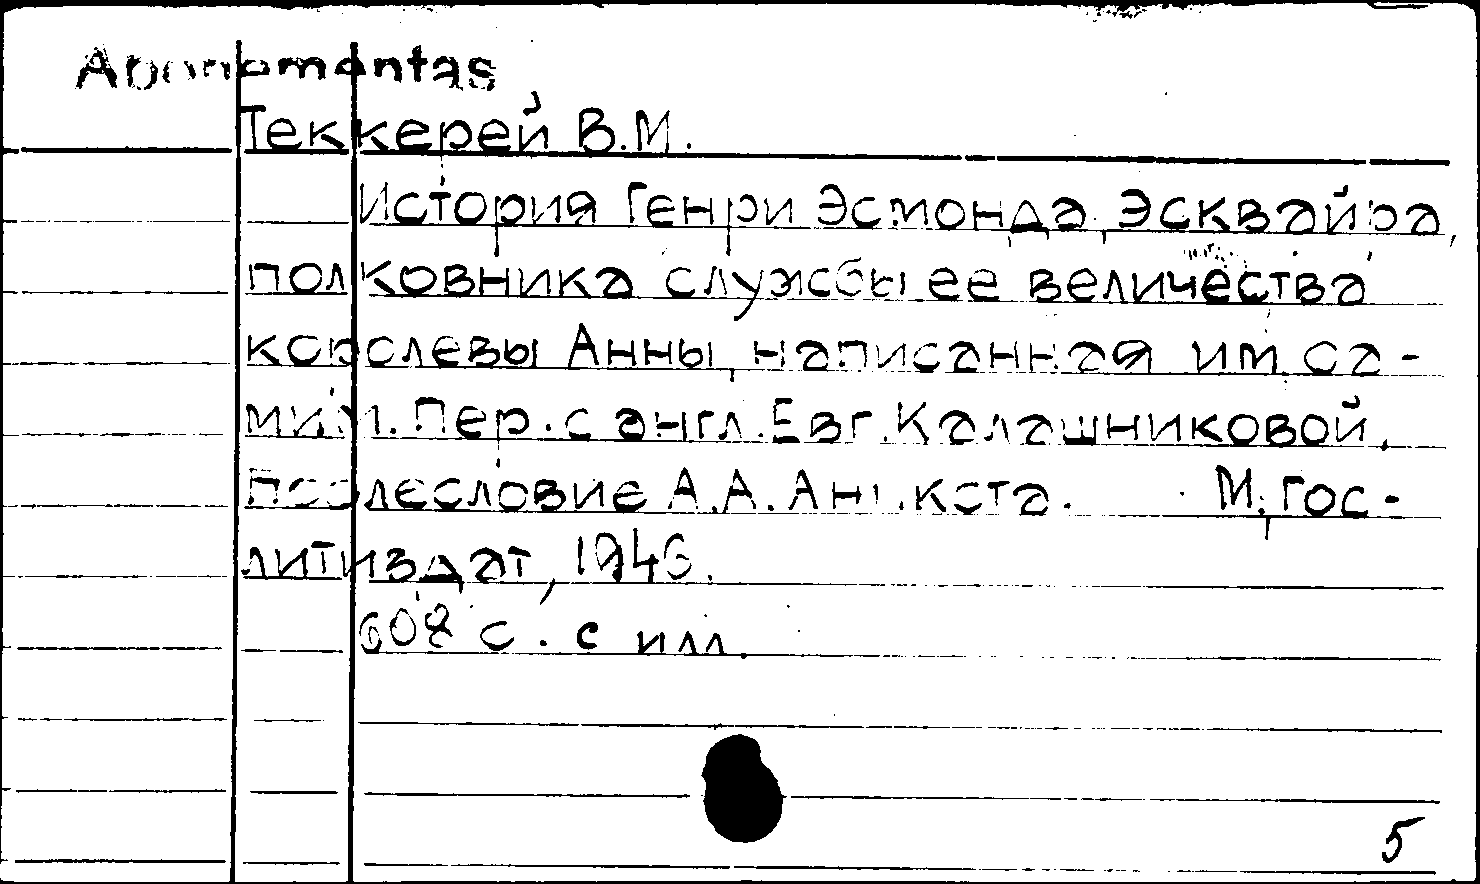 Abonementas
Теккерей В.М.
История Генри Эсмонда, Эсквайра,
полковника службы ее величества
королевы Анны, написанная им са-
мим. Пер. с англ. Евг. Калашниковой.
Послесловие А.А. Аникста. М, Гос-
литиздат, 1946.
608 с. с илл.
5